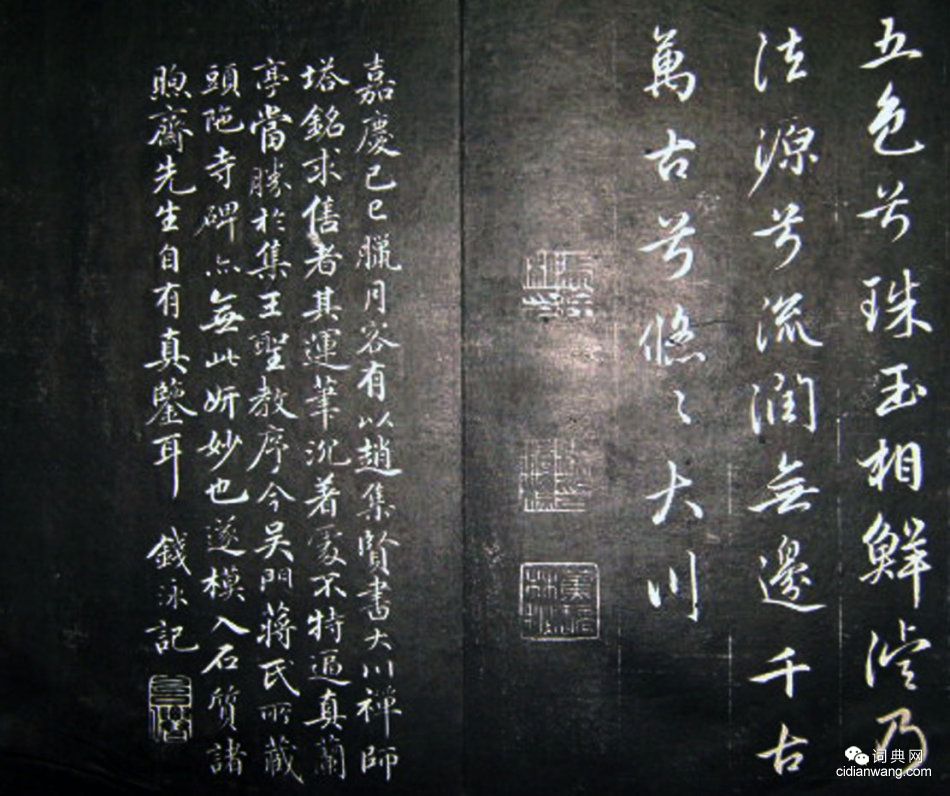 五色兮珠玉相鮮澄乃
法源兮流潤無邊千古
萬古兮悠〻大川
嘉慶己巳臘月客有以趙集賢書大川禪師
塔銘求售者其運筆沉著處不特逼真蘭
亭當勝於集王聖教序今吳門蔣氏所藏
頭陀寺碑亦無此妍妙也遂模入石質諸
煦齋先生自有真鑒耳 錢泳記
词典网
cidianwang.com